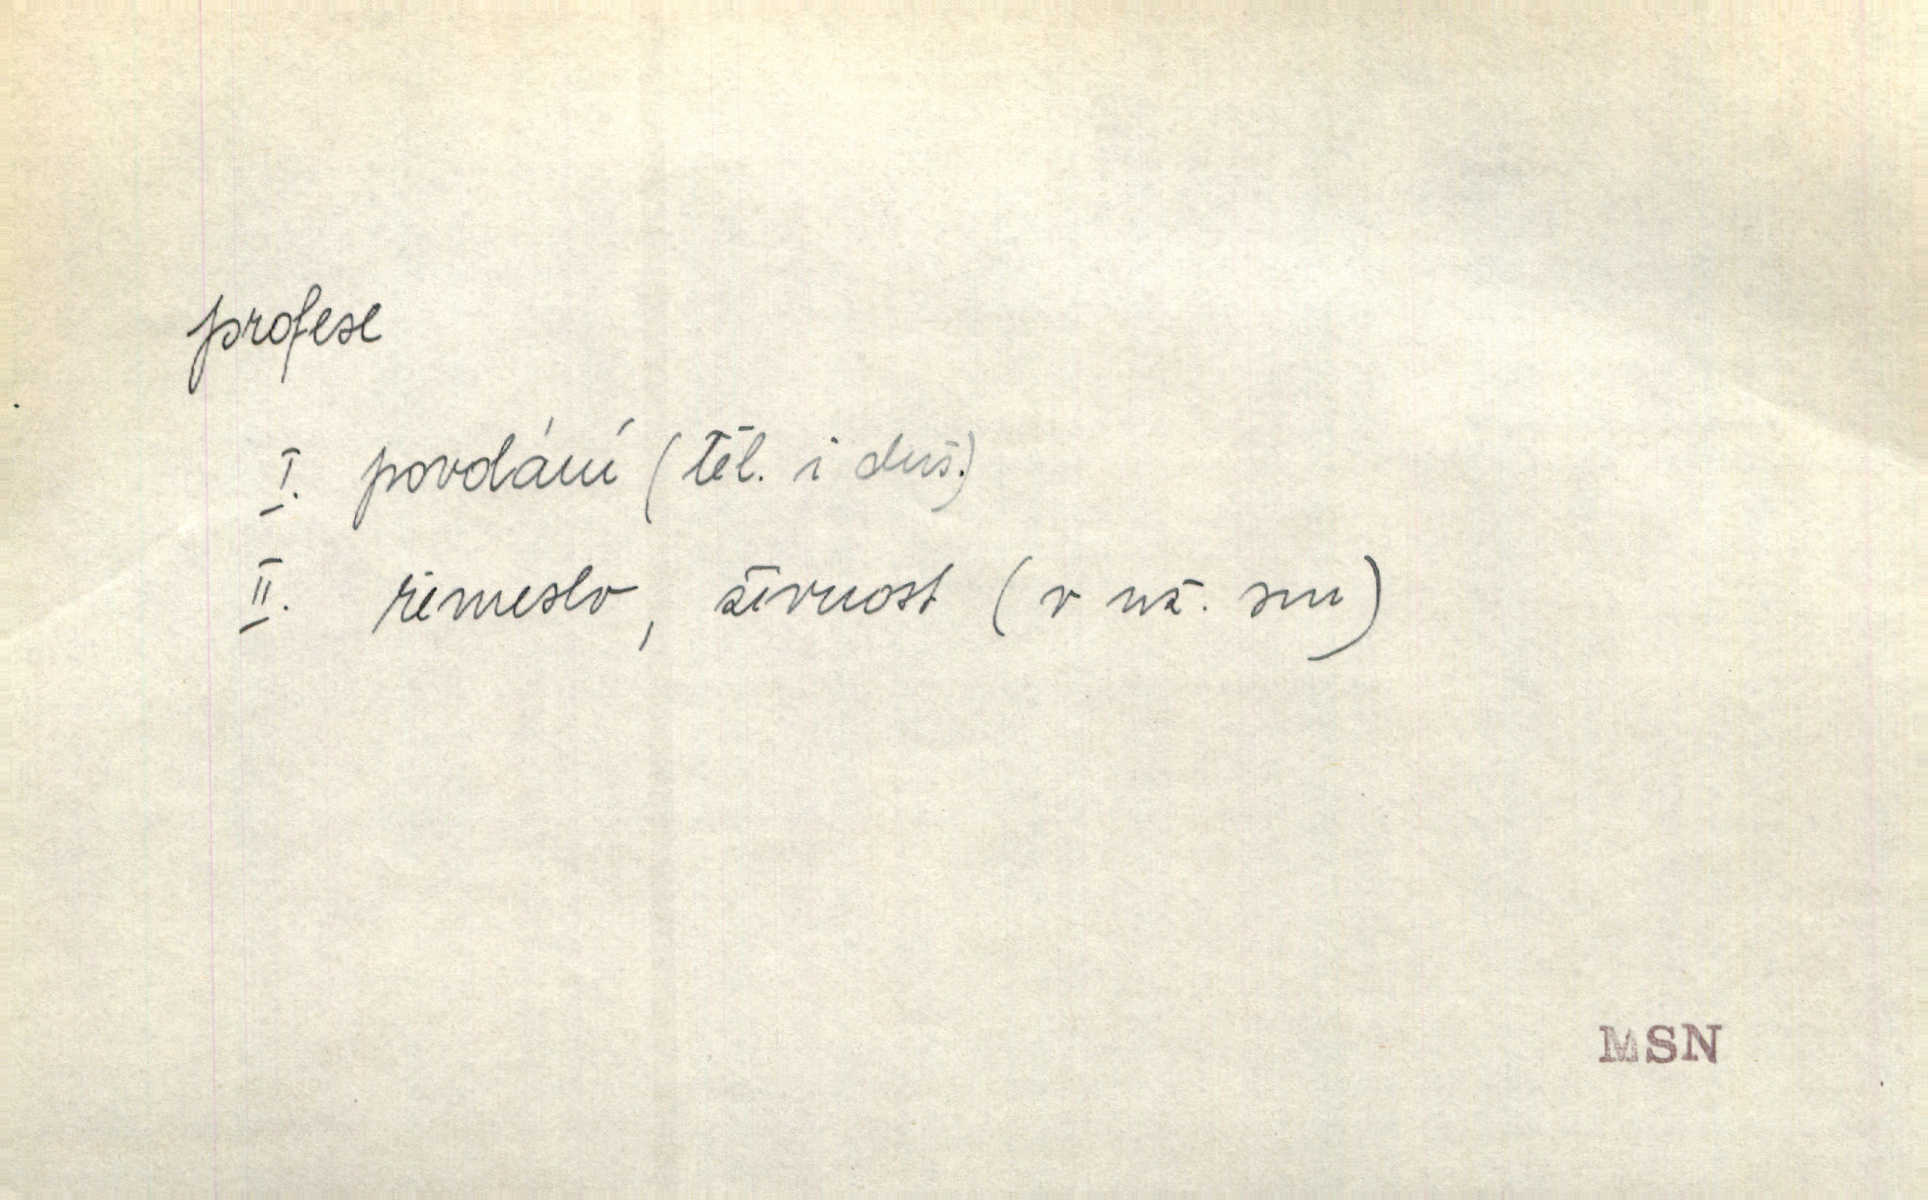 profese
I. povolání (těl. i duš.)
II. řemeslo, živnost (v už. sm)
MSN